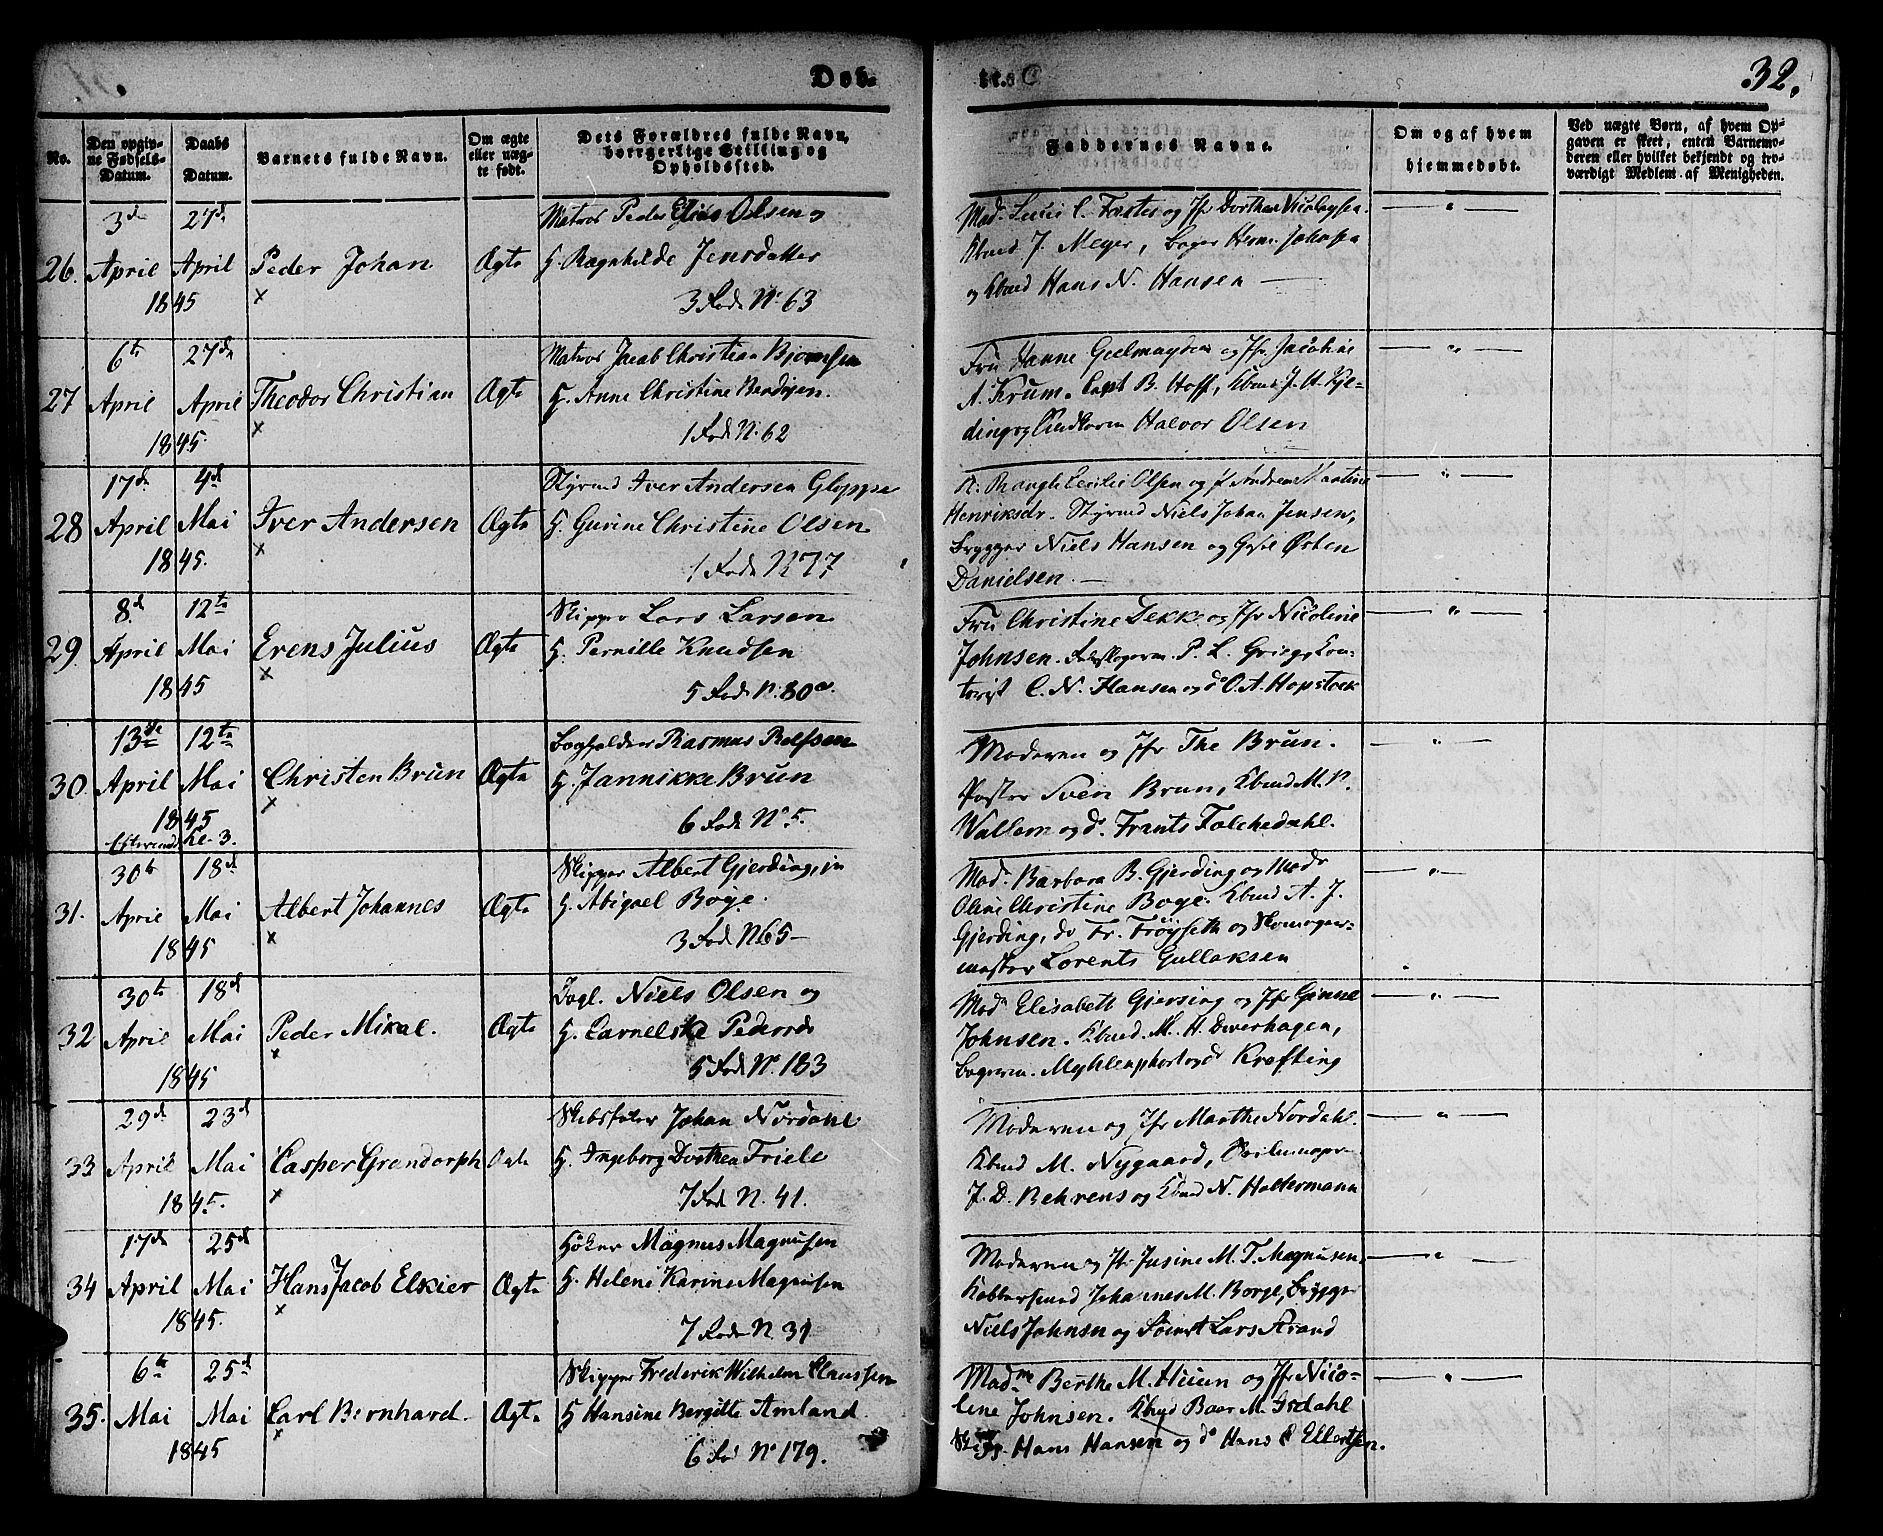 Døb-
te.
32.
No.
Den opgiv-
ne Fødsels-
Datum.
Daabs
Datum.
Barnets fulde Navn.
Om ægte
eller uæg-
te født.
Dets Forældres fulde Navn,
borrgerlige Stilling og
Opholdssted.
Faddernes Navne.
Om og af hvem
hjemmedøbt.
Ved uægte Børn, af hvem Op-
gaven er skeet, enten Barnemo-
deren eller hvilket bekjendt og tro-
værdigt Medlem af Menigheden.
26.
3d
April
27d
April
1845
Peder Johan
x
Ægte
Matros Peder Elias Olsen og
H. Ragnhilde Jensdatter
3 Fode N. 63
Mad. Lucie C. Forster og Jfr Dorthea Nicolaysen.
Kbmd J. Meyer, Bager Herm. Johnsen
og Kbmd Hans N. Hansen
27
6te
April
27de
April
1845.
Theodor Christian
x
Ægte
Matros Jacob Christian Bjornsen
H. Anne Christine Bendixen.
1 Fode N. 62
Fru Hanne Geelmuyden og Jfr. Jacobine
A. Krum. Capt B. Hoff, Kbmd J. H. Kje-
ding og Halvor Olsen
28
17de
April
4d
Mai
1845.
Iver Andersen
x
Ægte
Styrmd Iver Andersen Gloppe
H. Gurine Christine Olsen
1 Fode N 77
Cecilie Olsen og Andrea Martine
Henriksdr. Styrmd Niels Johan Jensen,
Brygger Niels Hansen og Østen
Danielsen.
29
8d
April
12te
Mai
1845
Erens Julius
x
Ægte
Skipper Lars Larsen
H. Pernille Knudsen
5 Fode N. 80a.
Fru Christine Dekke og Jfr Nicoline
Johnsen. P. L. Grieg, Con-
torist C. N. Hansen og do O. A. Hopstock
30.
13de
April
12te
Mai
1845
Efterm Kl. 3.
Christen Brun
x
Ægte
Bogholder Rasmus Rolfsen
H. Jannikke Brun
6 Fode No 5.
Moderen og Jfr The Brun.
Pastor Sven Brun, Kbmd M. P.
Wallem og do. Frants Falchedahl.
31.
30te
April
18d
Mai
1845
Albert Johannes
x
Ægte
Skipper Albert Gjerding, jn
H. Abigael Boge.
3 Fod N 65
Mad. Barbara B. Gjerding og Mad
Oline Christine Boge. Kbmd A. J.
Gjerding, do Fr. Frøyseth og Skomager-
mester Lorents Gullaksen
32
30te
April
18d
Mai
1845
Peder Mikal.
x
Ægte
Dagl. Niels Olsen og
H. Carnelske Pedersdr
5 Fod No. 183
Mad Elisabeth Gjersing og Jfr Ginne
Johnsen. Kbmd. M. H. Dwerhagen,
Bagersv. Myhlenphort og do Krefting
33
29d
April
23d
Mai
1845.
Casper Grendorph
x
Ægte
Skibsfører Johan Nordahl
H. Ingeborg Dorthea Friele
7 Fode N. 41.
Moderen og Jfr Marthe Nordahl.
Kbmd M. Nygaard,
J. D. Behrens og Kbmd N. Haltermann
34
17de
April
25d
Mai
1845.
Hans Jacob Elskier
x
Ægte
Høker Magnus Magnusen
H. Helene Karine Magnusen
7 Fode N 31
Moderen og Jfr Jusine M. T. Magnusen,
Kobbersmed Johannes M. Borge, Brygger
Niels Johnsen og Lars Strand
35.
6te
Mai
25d
Mai
1845
Carl Bernhard.
x
Ægte
Skipper Frederik Wilhelm Claussen
H Hansine Bergitte Amland
6 Fod No 179.
Madme Berthe M. Huun og Jfr Nico-
line Johnsen. Kbmd Baer M. Isdahl
Skipr. Hans Hansen og do Hans E Ellertsen.